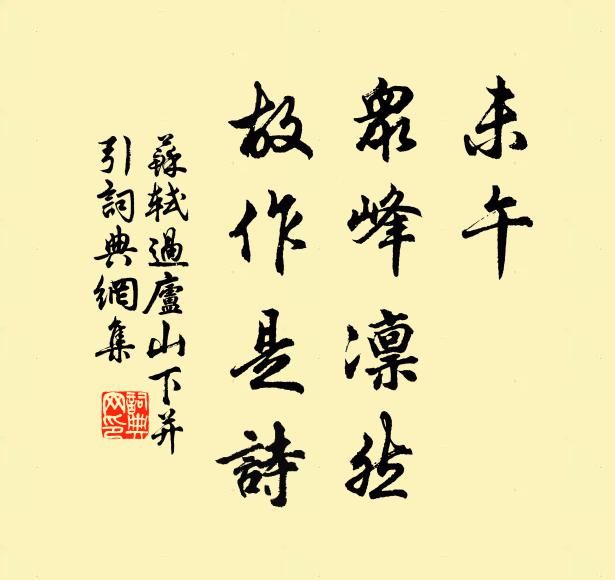 未午
眾峰凜然
故作是詩
蘇軾過廬山下并
引詞典網集
詞典
网印